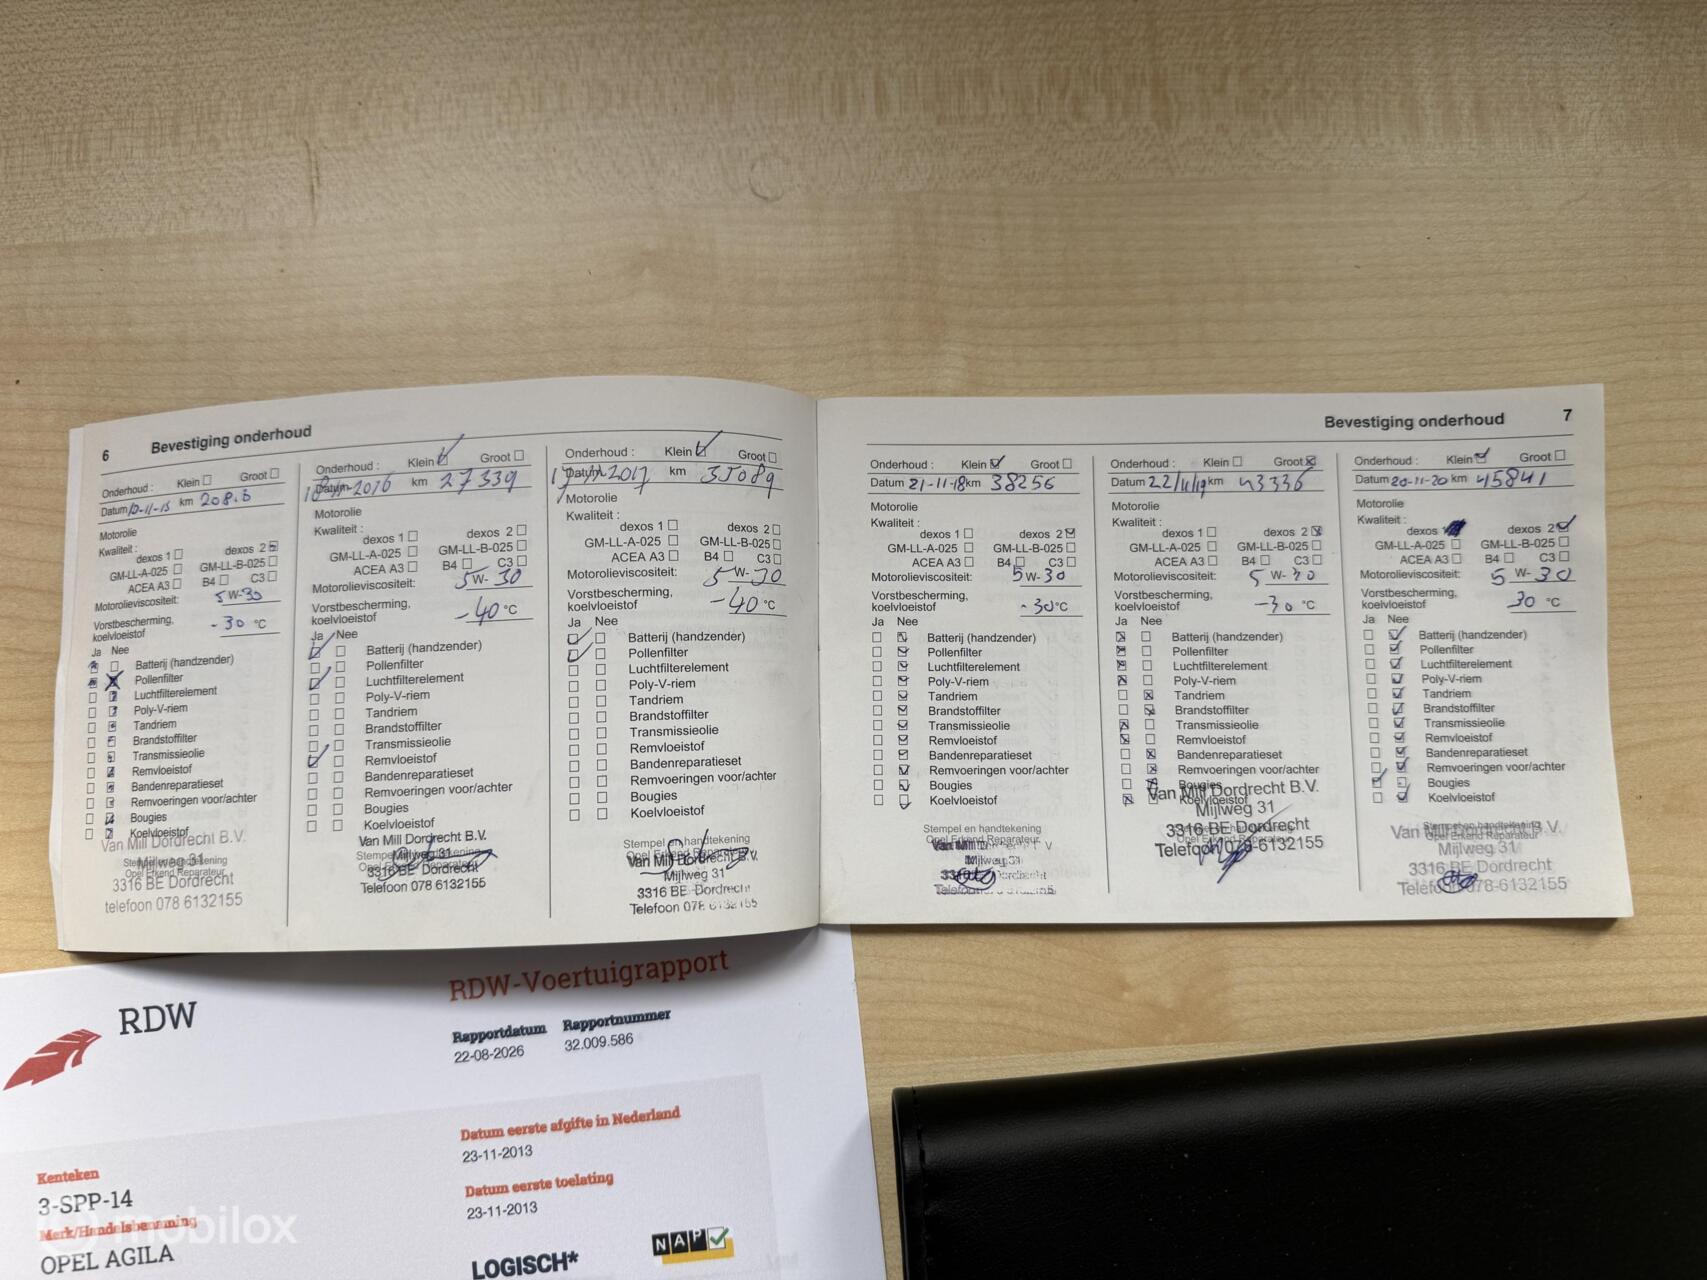 6 Bevestiging onderhoud
Onderhoud : Klein Groot
Datum 10-11-15 km 208.6
Motorolie
Kwaliteit :
dexos 1 dexos 2
GM-LL-A-025 GM-LL-B-025
ACEA A3 B4 C3
Motorolieviscositeit: 5 W-30
Vorstbescherming,
koelvloeistof - 30 °C
Ja Nee
Batterij (handzender)
Pollenfilter
Luchtfilterelement
Poly-V-riem
Tandriem
Brandstoffilter
Transmissieolie
Remvloeistof
Bandenreparatieset
Remvoeringen voor/achter
Bougies
Koelvloeistof
Van Mill Dordrecht B.V.
Mijlweg 31
Stempel en handtekening
Opel Erkend Reparateur
3316 BE Dordrecht
telefoon 078 6132155
Onderhoud : Klein Groot
Datum 2016 km 27339
Motorolie
Kwaliteit :
dexos 1 dexos 2
GM-LL-A-025 GM-LL-B-025
ACEA A3 B4 C3
Motorolieviscositeit: 5 W- 30
Vorstbescherming,
koelvloeistof -40 °C
Ja Nee
Batterij (handzender)
Pollenfilter
Luchtfilterelement
Poly-V-riem
Tandriem
Brandstoffilter
Transmissieolie
Remvloeistof
Bandenreparatieset
Remvoeringen voor/achter
Bougies
Koelvloeistof
Van Mill Dordrecht B.V.
Stempel en handtekening
Mijlweg 31
Opel Erkend Reparateur
3316 BE Dordrecht
Telefoon 078 6132155
Onderhoud : Klein Groot
Datum 2017 km 35089
Motorolie
Kwaliteit :
dexos 1 dexos 2
GM-LL-A-025 GM-LL-B-025
ACEA A3 B4 C3
Motorolieviscositeit: 5 W-30
Vorstbescherming,
koelvloeistof -40 °C
Ja Nee
Batterij (handzender)
Pollenfilter
Luchtfilterelement
Poly-V-riem
Tandriem
Brandstoffilter
Transmissieolie
Remvloeistof
Bandenreparatieset
Remvoeringen voor/achter
Bougies
Koelvloeistof
Stempel en handtekening
Opel Erkend Reparateur
Van Mill Dordrecht B.V.
Mijlweg 31
3316 BE Dordrecht
Telefoon 078 6132155
Bevestiging onderhoud 7
Onderhoud : Klein Groot
Datum 21-11-18 km 38256
Motorolie
Kwaliteit :
dexos 1 dexos 2
GM-LL-A-025 GM-LL-B-025
ACEA A3 B4 C3
Motorolieviscositeit: 5 W-30
Vorstbescherming,
koelvloeistof - 30 °C
Ja Nee
Batterij (handzender)
Pollenfilter
Luchtfilterelement
Poly-V-riem
Tandriem
Brandstoffilter
Transmissieolie
Remvloeistof
Bandenreparatieset
Remvoeringen voor/achter
Bougies
Koelvloeistof
Stempel en handtekening
Opel Erkend Reparateur
Van Mill
Mijlweg 31
Dordrecht
Onderhoud : Klein Groot
Datum 22/11/19 km 43336
Motorolie
Kwaliteit :
dexos 1 dexos 2
GM-LL-A-025 GM-LL-B-025
ACEA A3 B4 C3
Motorolieviscositeit: 5 W-30
Vorstbescherming,
koelvloeistof -30 °C
Ja Nee
Batterij (handzender)
Pollenfilter
Luchtfilterelement
Poly-V-riem
Tandriem
Brandstoffilter
Transmissieolie
Remvloeistof
Bandenreparatieset
Remvoeringen voor/achter
Bougies
Koelvloeistof
Van Mill Dordrecht B.V.
Mijlweg 31
3316 BE Dordrecht
Stempel en handtekening
Opel Erkend Reparateur
Telefoon 078-6132155
Onderhoud : Klein Groot
Datum 20-11-20 km 45841
Motorolie
Kwaliteit :
dexos dexos 2
GM-LL-A-025 GM-LL-B-025
ACEA A3 B4 C3
Motorolieviscositeit: 5 W-30
Vorstbescherming,
koelvloeistof 30 °C
Ja Nee
Batterij (handzender)
Pollenfilter
Luchtfilterelement
Poly-V-riem
Tandriem
Brandstoffilter
Transmissieolie
Remvloeistof
Bandenreparatieset
Remvoeringen voor/achter
Bougies
Koelvloeistof
Stempel en handtekening
Van Mill Dordrecht B.V.
Opel Erkend Reparateur
Mijlweg 31
3316 BE Dordrecht
Telefoon 078-6132155
RDW
RDW-Voertuigrapport
Rapportdatum Rapportnummer
22-08-2026 32.009.586
Datum eerste afgifte in Nederland
23-11-2013
Kenteken
3-SPP-14
Datum eerste toelating
23-11-2013
Merk/Handelsbenaming
OPEL AGILA
LOGISCH*
NAP
mobilox